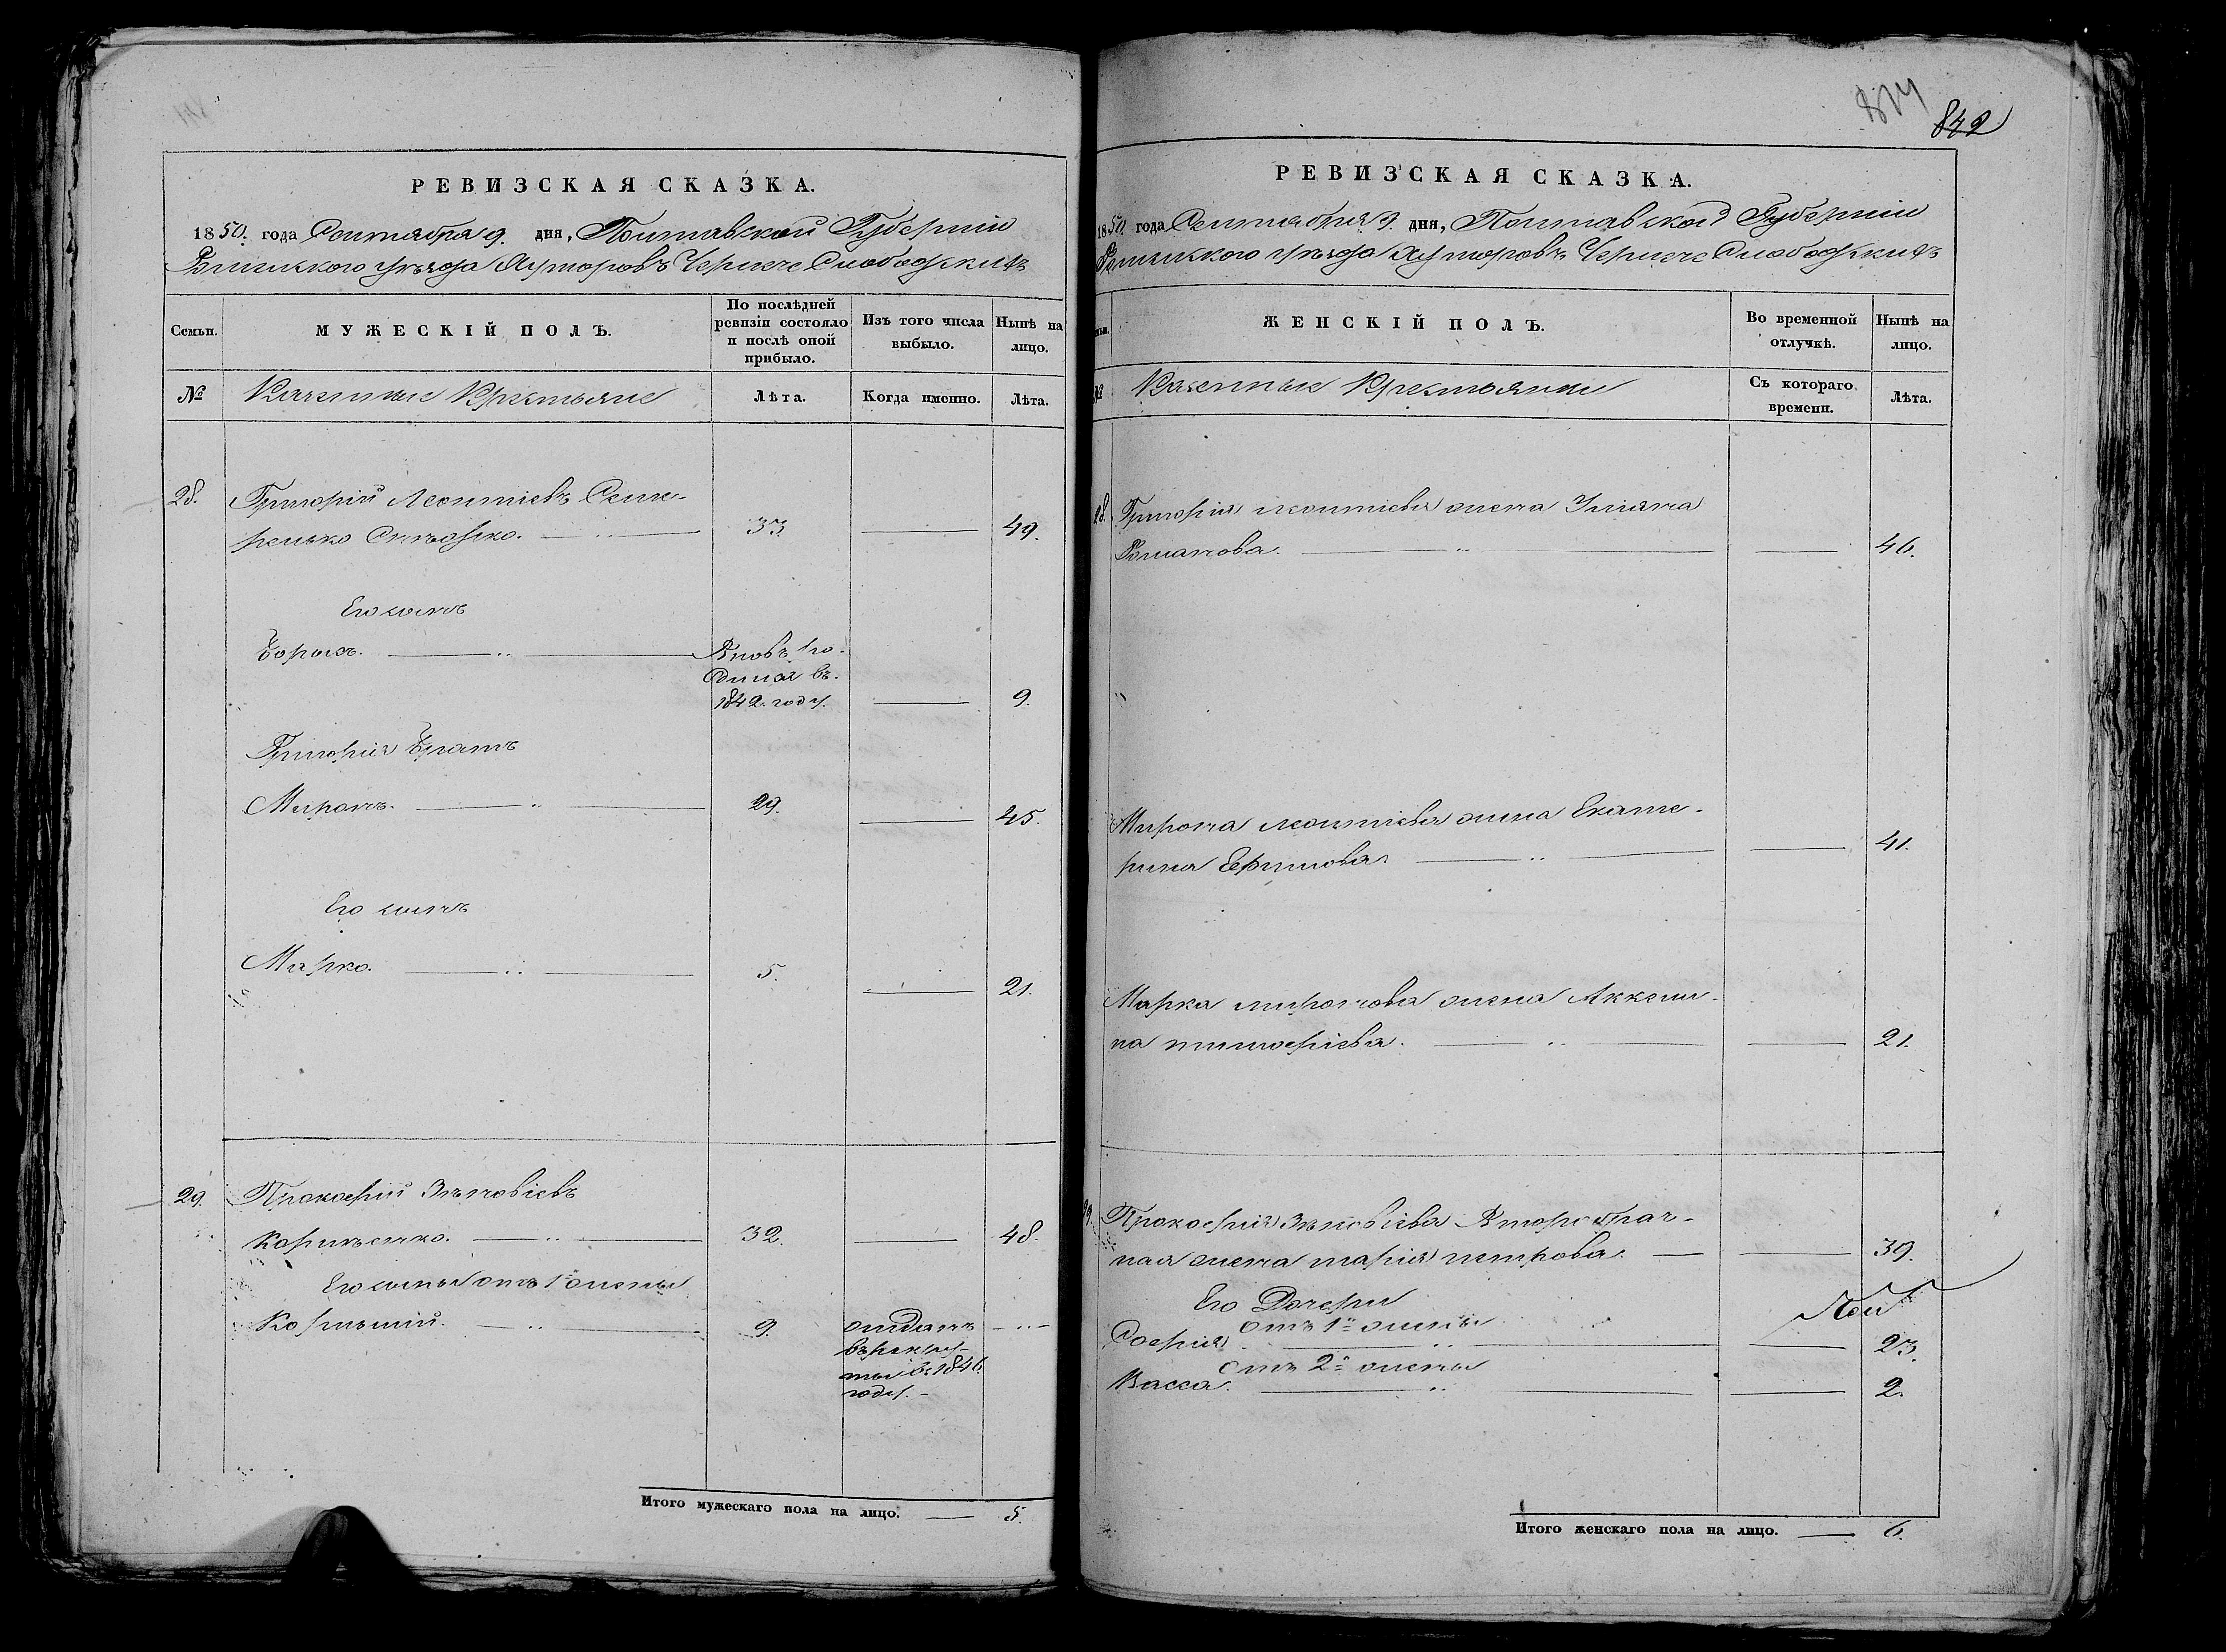 РЕВИЗСКАЯ СКАЗКА.
1850. года Сентября 9. дня, Полтавской Губерніи
Роменского уѣзда Хуторовъ Чернече Слободскихъ
Семьи.
МУЖЕСКІЙ ПОЛЪ.
По послѣдней ревизіи состояло и послѣ оной прибыло.
Изъ того числа выбыло.
Нынѣ на лицо.
№
Казенные Крестьяне
Лѣта.
Когда именно.
Лѣта.
28. Григорій Леонтіевъ
33. 49.
Его сынъ
Борисъ. Вновь ро-
дился въ
1842. году. 9.
Григорія Братъ
Миронъ. 29. 45.
Его сынъ
Марко. 5. 21.
29. Прокофій Зѣновіевъ
32. 48.
Его сыны отъ 1 жены
Корнилій. 9. отданъ
въ рекру-
ты въ 1846.
году.
Итого мужескаго пола на лицо. 5.
814
842
РЕВИЗСКАЯ СКАЗКА.
1850. года Сентября 9. дня, Полтавской Губерніи
Роменского уѣзда Хуторовъ Чернече Слободскихъ
ЖЕНСКІЙ ПОЛЪ.
Во временной отлучкѣ.
Нынѣ на лицо.
№
Казенные Крестьянки
Съ котораго времени.
Лѣта.
28. Григорія леонтіева жена Ульяна
Романова. 46.
Мирона леонтіева жена Екате-
рина Ефимова 41.
Марка миронова жена Аксени-
на тимофіева. 21.
29. Прокофія Зѣновіева Второбрач-
ная жена марія петрова. 39.
Его Дочери
отъ 1й жены
Софія 23.
отъ 2й жены
Васса. 2.
Итого женскаго пола на лицо. 6.